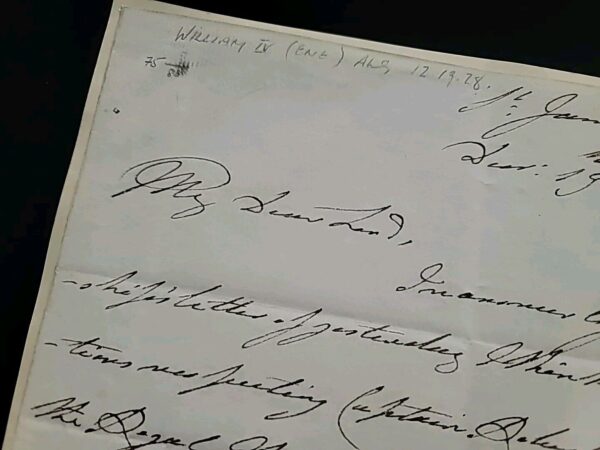 WILLIAM IV (ENG) ALS, 12.19.28.
75
St. Jam
Decr: 19
My Dear Lord,
In answer
-ship's letter of yesterday I think
-tions respecting Captain
the Royal